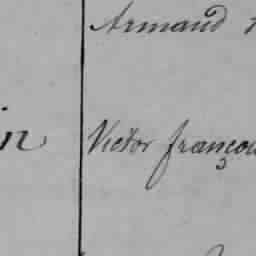 Armand
in Victor françois